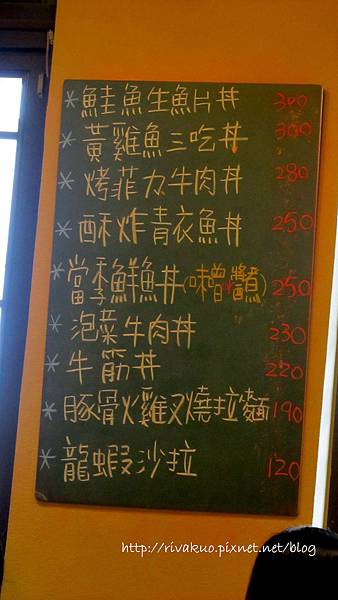 *鮭魚生魚片丼 300
*黃雞魚三吃丼 300
*烤菲力牛肉丼 280
*酥炸青衣魚丼 250
*當季鮮魚丼(味噌醬煮) 250
*泡菜牛肉丼 230
*牛筋丼 220
*豚骨火雞叉燒拉麵 190
*龍蝦沙拉 120
http://rivakuo.pixnet.net/blog